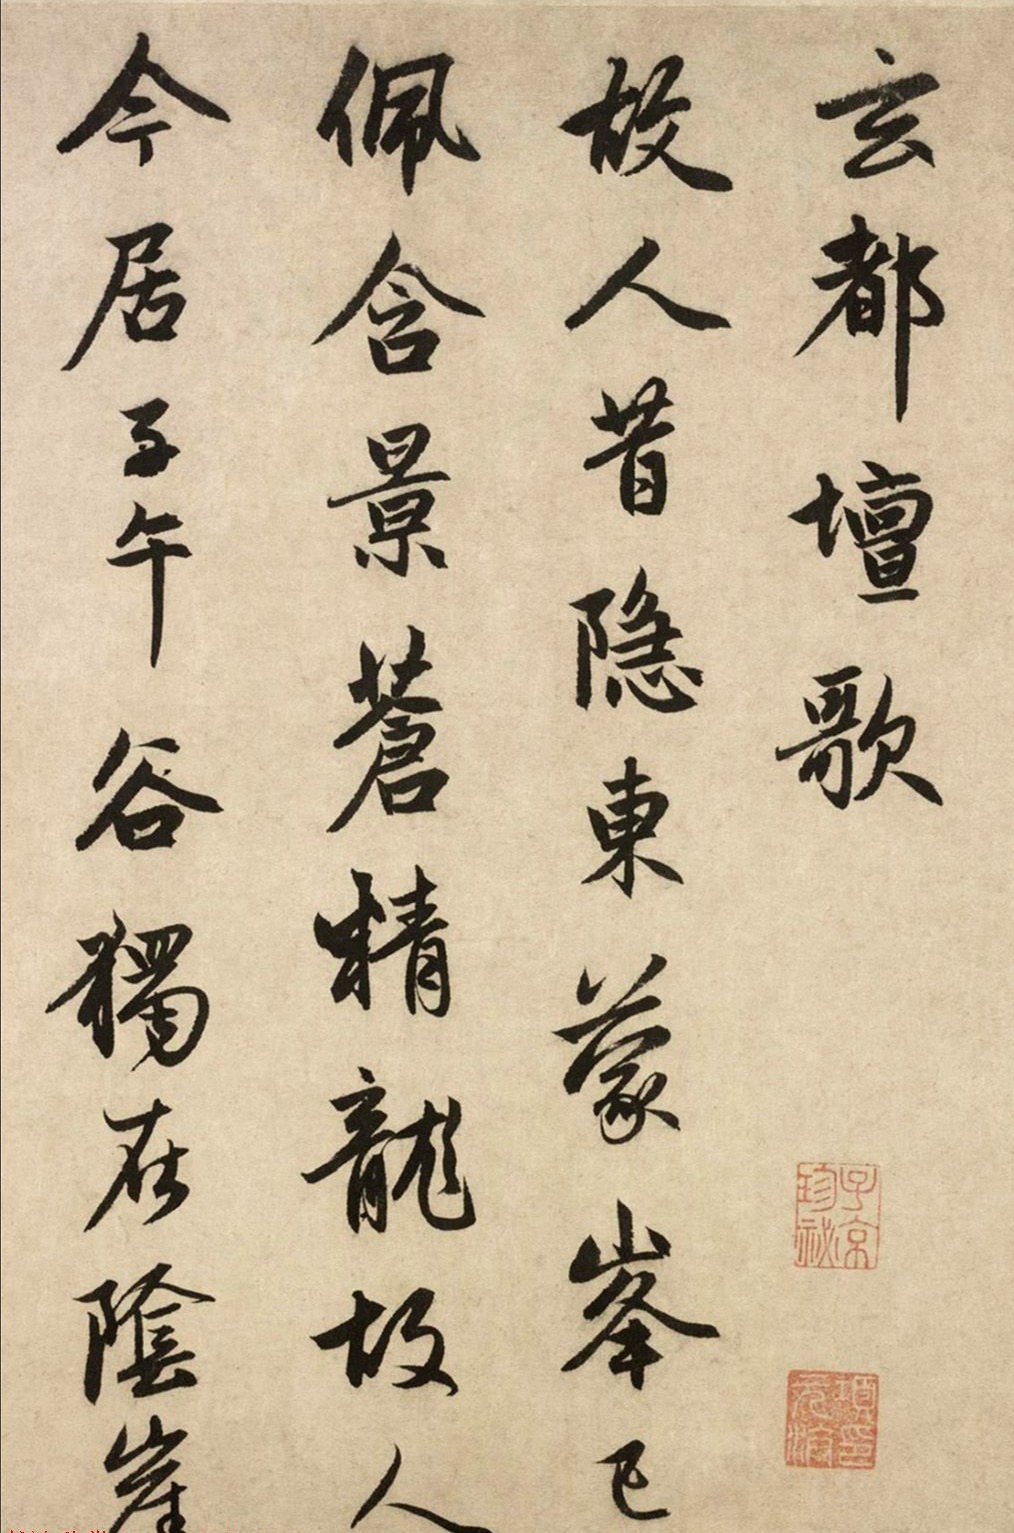 玄都壇歌
故人昔隐東蒙峯已
佩含景蒼精龍故人
今居子午谷獨在陰崖
子京珍祕
項元汴印